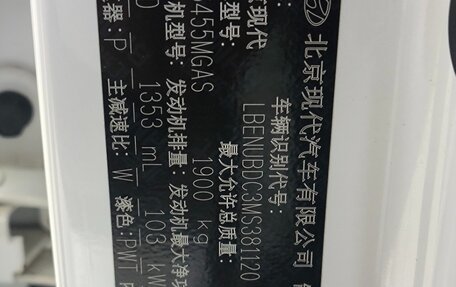 北京现代汽车有限公司
车辆识别代号:
LBENUBDC3MS381120
京现代
最大允许总质量:
型号:
1900 kg
455MGAS
机型号: 发动机排量: 发动机最大净功
1353 mL 103 kW
器: P 主减速比: W 漆色: PWT